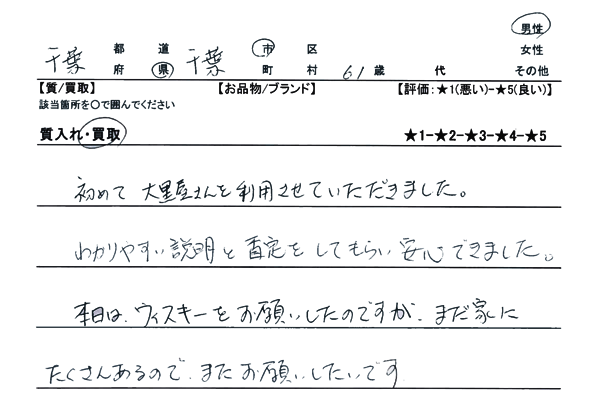 千葉 都道府県 千葉 市区町村 61歳代 男性 女性 その他
【質/買取】 【お品物/ブランド】 【評価:★1(悪い)-★5(良い)】
該当箇所を○で囲んでください
質入れ・買取 ★1-★2-★3-★4-★5
初めて大黒屋さんを利用させていただきました。
わかりやすい説明と査定をしてもらい安心できました。
本日は、ウィスキーをお願いしたのですが、まだ家に
たくさんあるので、またお願いしたいです